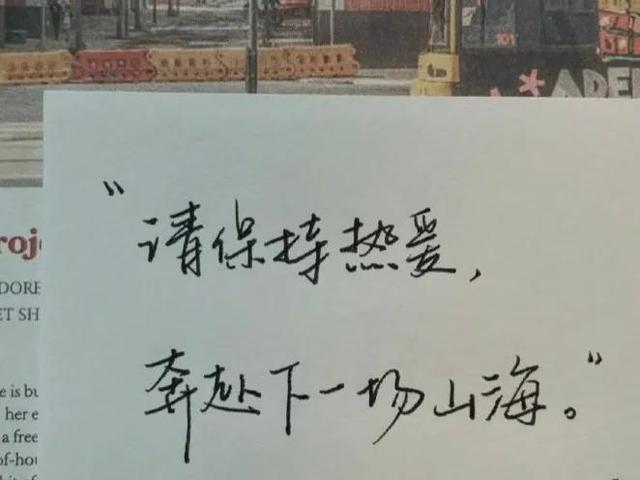 101
ADE
"请保持热爱，
奔赴下一场山海。"
roj
DORE
ET SH
e is bu
her e
a free
of-hou